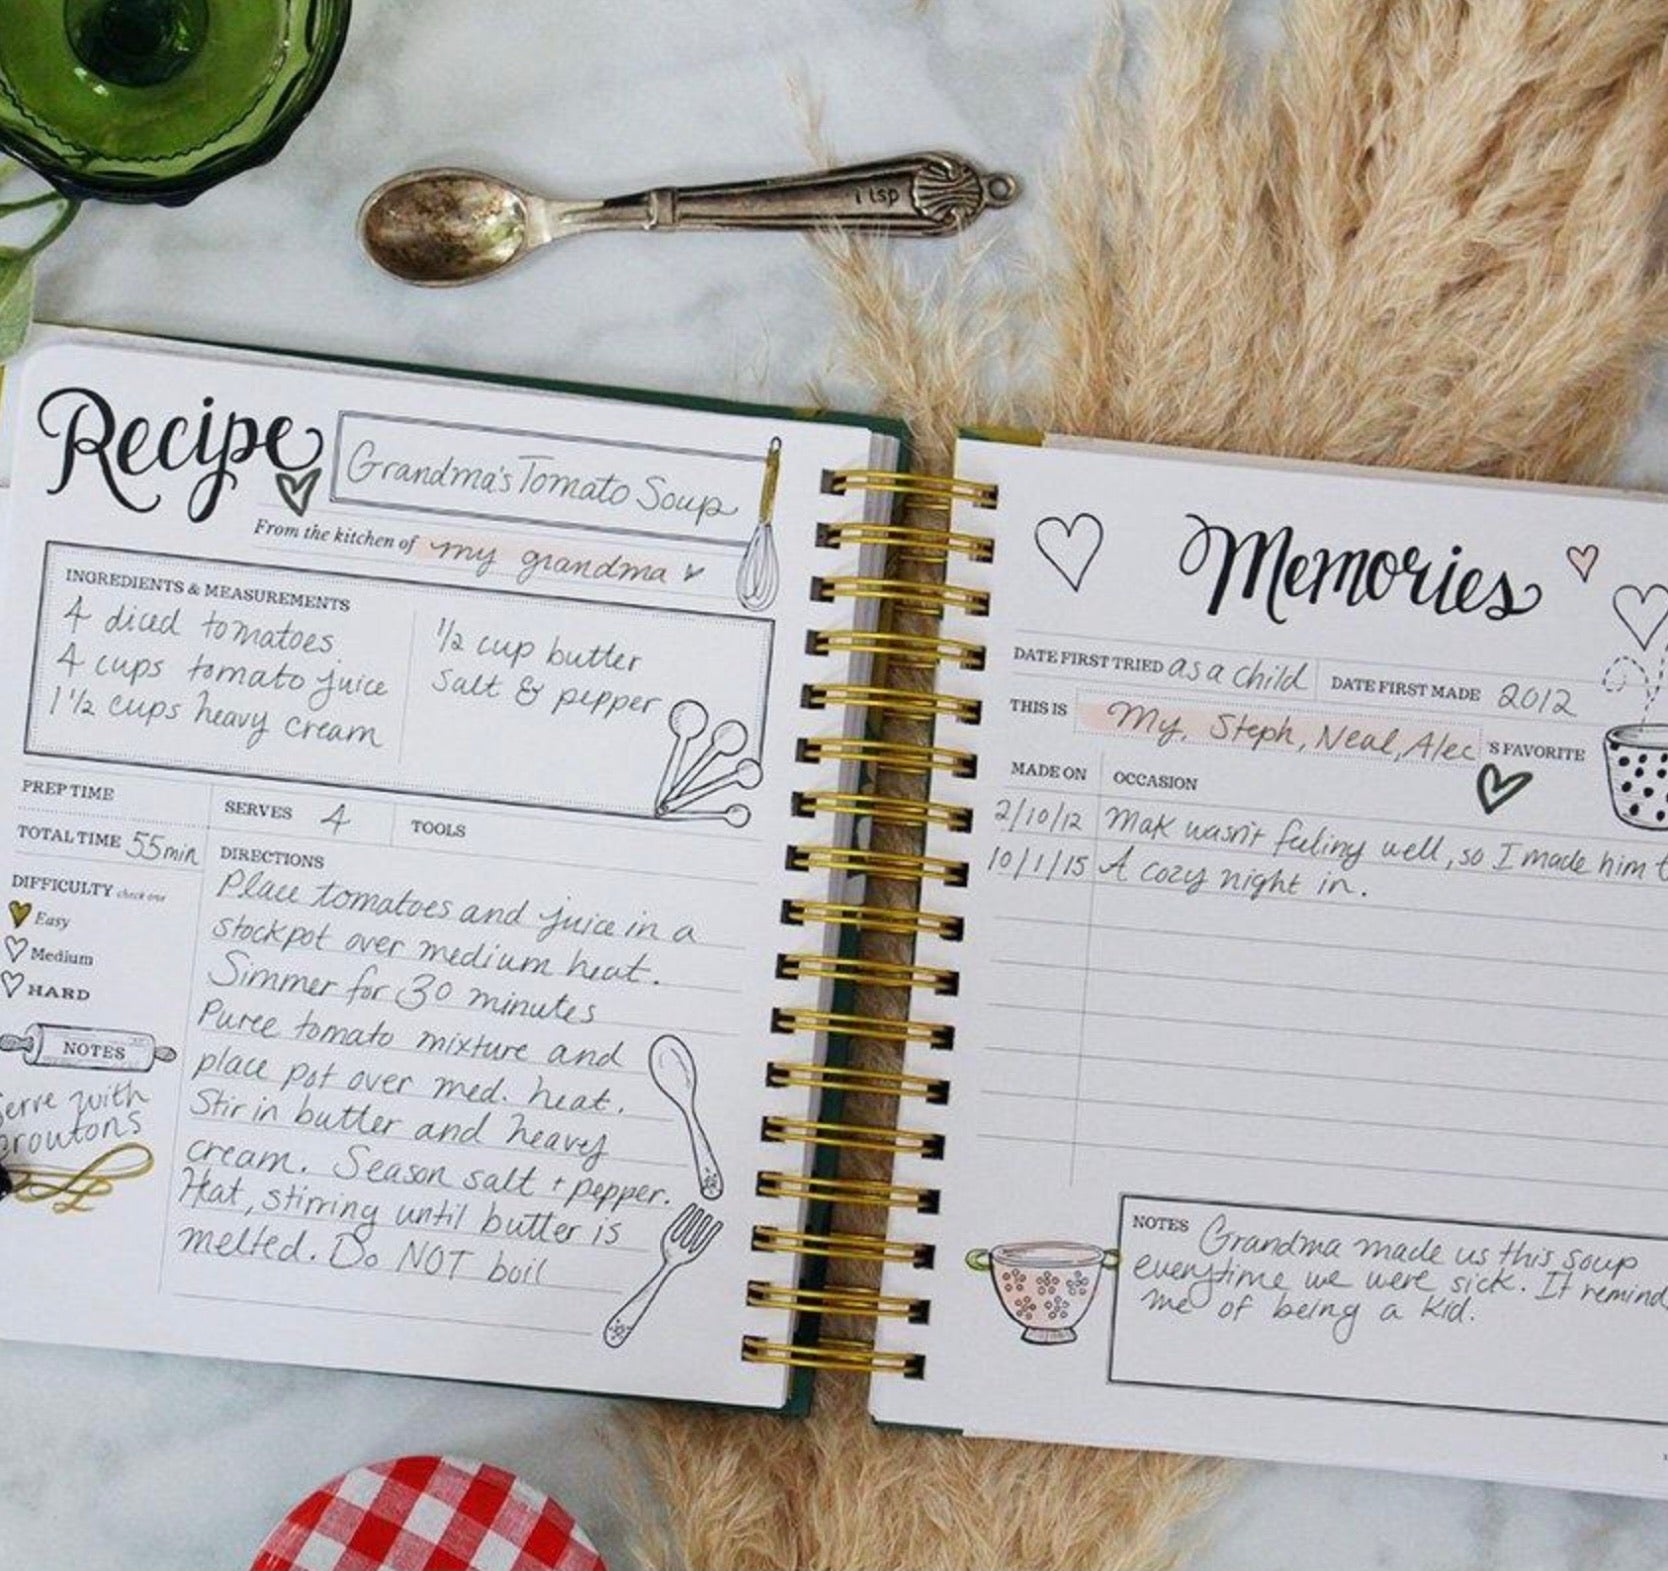 1 tsp
Recipe
Grandma's Tomato Soup
From the kitchen of my grandma
INGREDIENTS & MEASUREMENTS
4 diced tomatoes
4 cups tomato juice
1 1/2 cups heavy cream
1/2 cup butter
Salt & pepper
PREP TIME
SERVES 4
TOOLS
TOTAL TIME 55 min
DIFFICULTY check one
Easy
Medium
HARD
NOTES
erve with
routons
DIRECTIONS
Place tomatoes and juice in a
stockpot over medium heat.
Simmer for 30 minutes
Puree tomato mixture and
place pot over med. heat.
Stir in butter and heavy
cream. Season salt + pepper.
Heat, stirring until butter is
melted. Do NOT boil
Memories
DATE FIRST TRIED as a child
DATE FIRST MADE 2012
THIS IS My, Steph, Neal, Alec 'S FAVORITE
MADE ON OCCASION
2/10/12 Mak wasn't feeling well, so I made him t
10/1/15 A cozy night in.
NOTES Grandma made us this soup
everytime we were sick. It remind
me of being a kid.